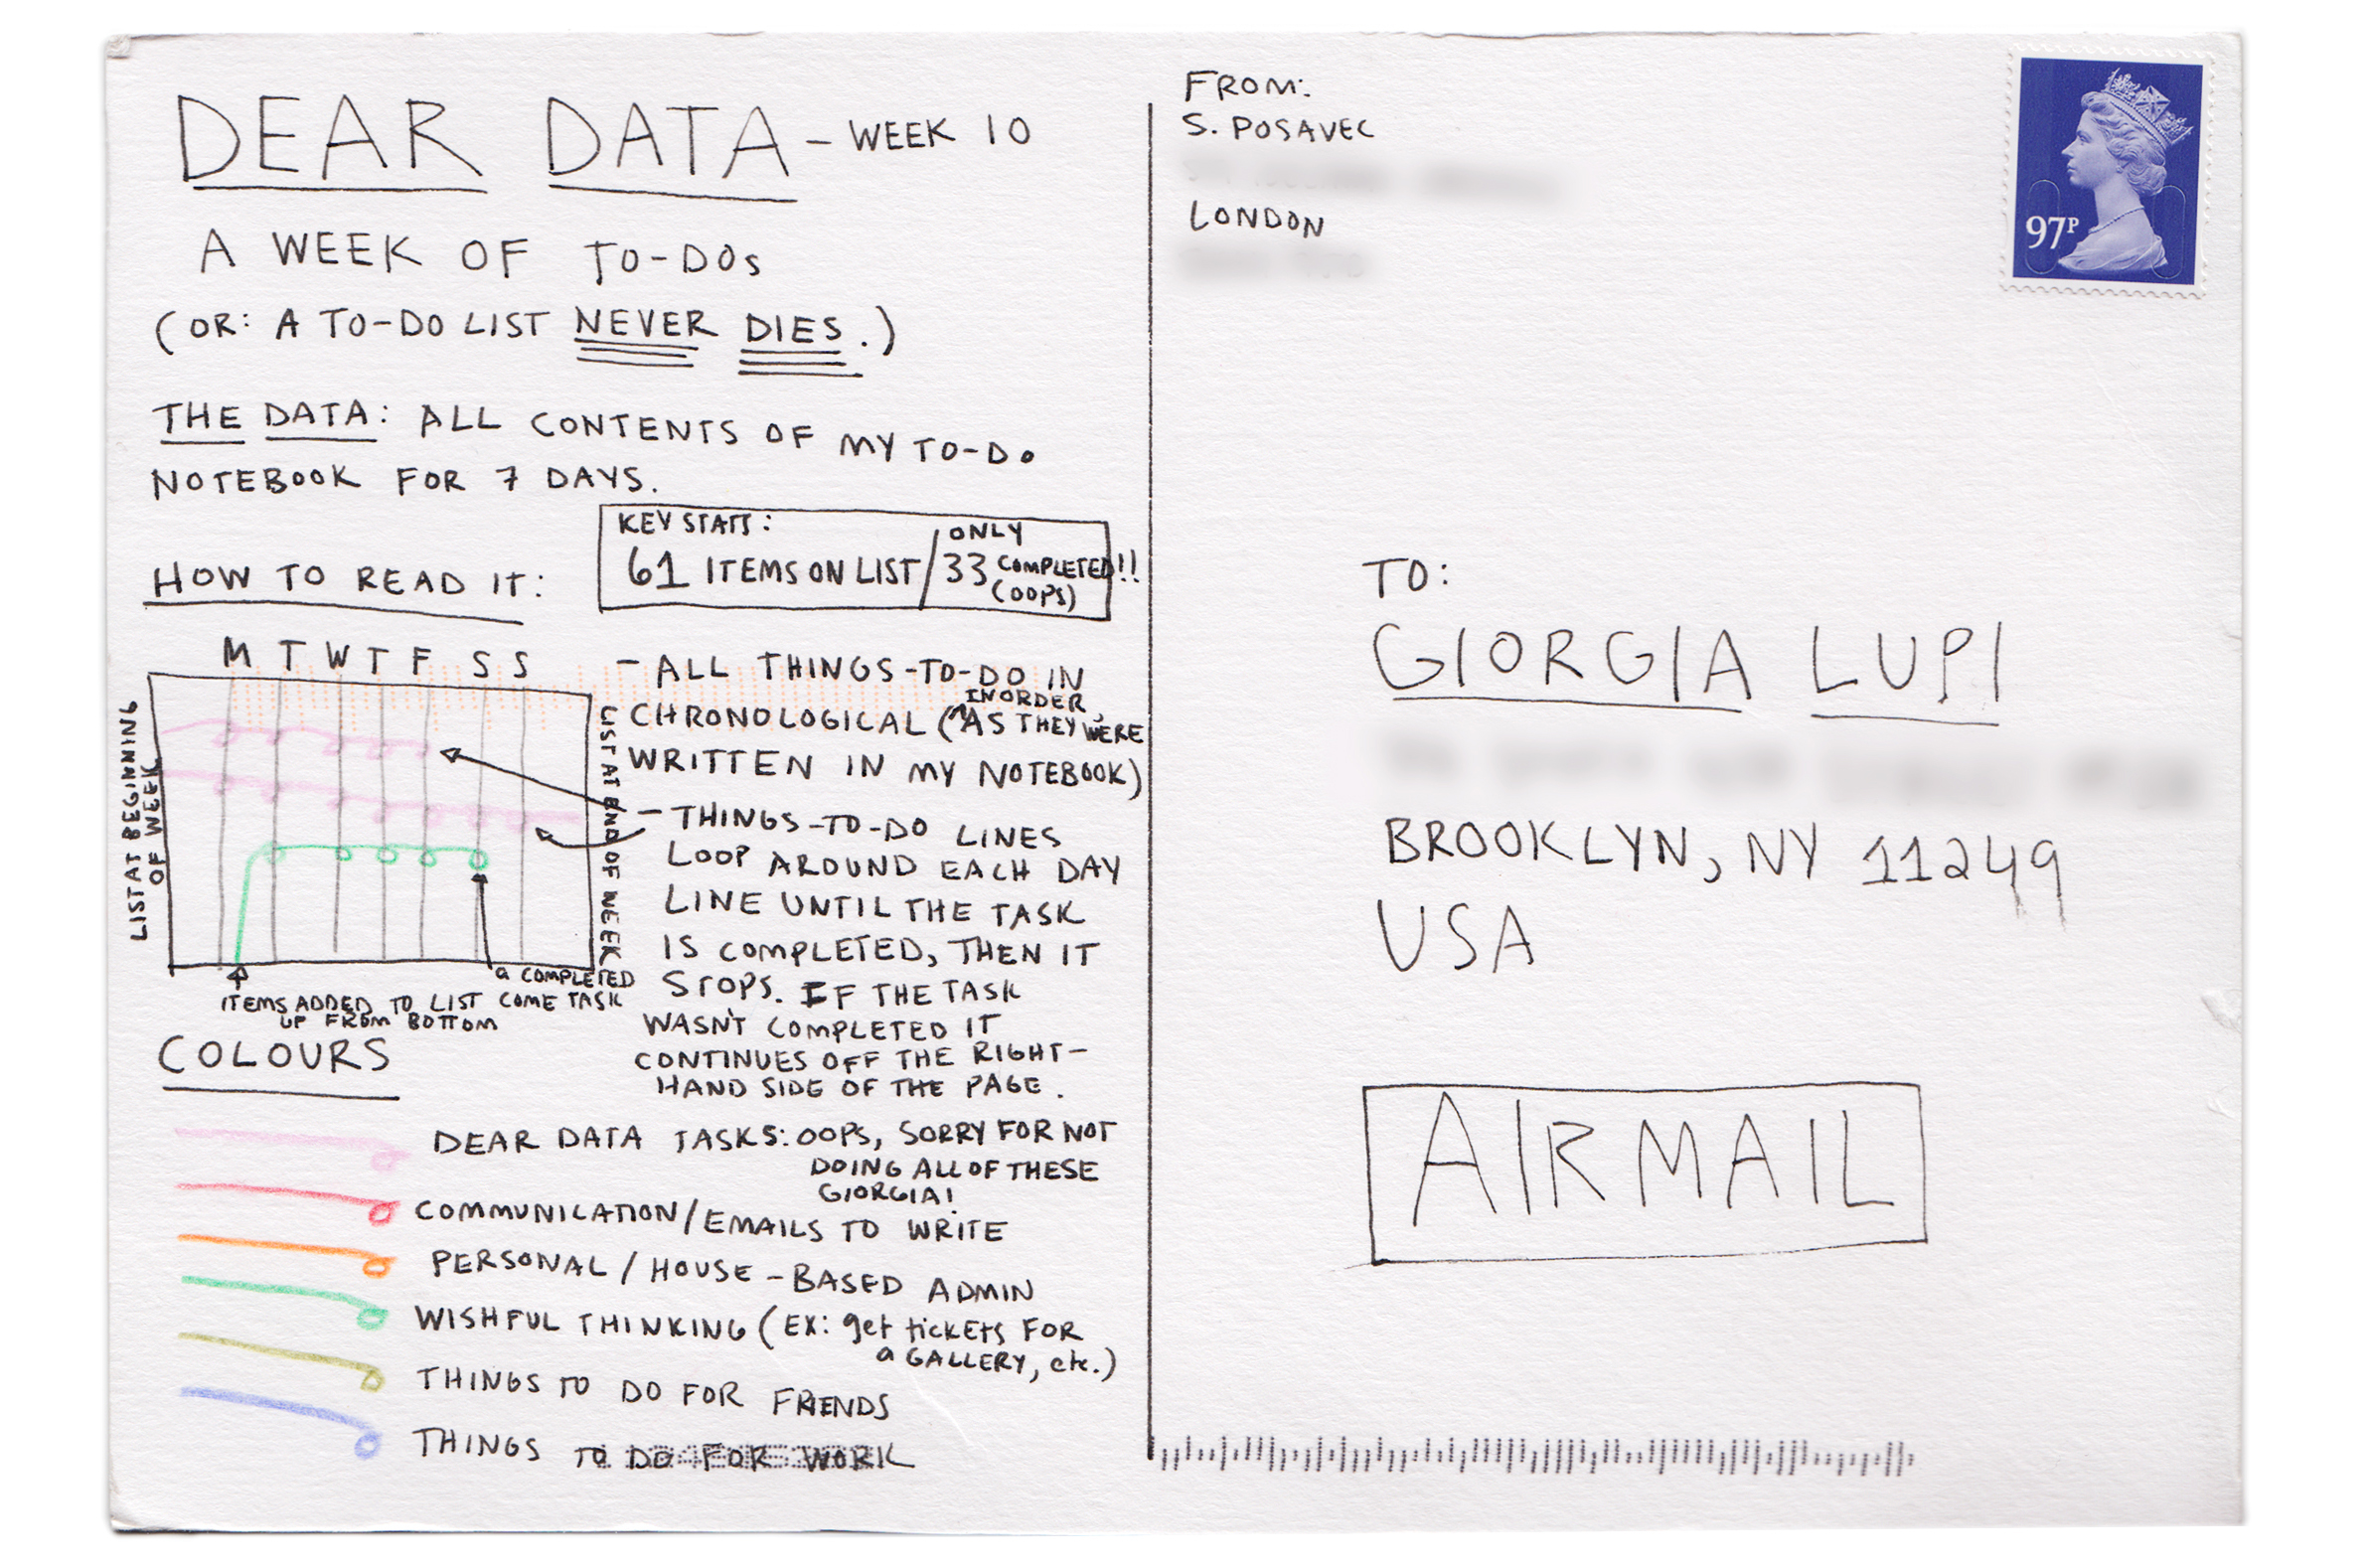 DEAR DATA - WEEK 10
A WEEK OF TO-DOs
(OR: A TO-DO LIST NEVER DIES.)
THE DATA: ALL CONTENTS OF MY TO-DO
NOTEBOOK FOR 7 DAYS.
KEY STATS:
61 ITEMS ON LIST / ONLY 33 COMPLETED!!
(OOPS)
HOW TO READ IT:
M T W T F S S
LIST AT BEGINNING
OF WEEK
LIST AT END OF WEEK
ITEMS ADDED TO LIST COME
UP FROM BOTTOM
a COMPLETED
TASK
- ALL THINGS-TO-DO IN
CHRONOLOGICAL (IN ORDER, AS THEY WERE
WRITTEN IN MY NOTEBOOK)
- THINGS-TO-DO LINES
LOOP AROUND EACH DAY
LINE UNTIL THE TASK
IS COMPLETED, THEN IT
STOPS. IF THE TASK
WASN'T COMPLETED IT
CONTINUES OFF THE RIGHT-
HAND SIDE OF THE PAGE.
COLOURS
DEAR DATA TASKS: OOPS, SORRY FOR NOT
DOING ALL OF THESE
GIORGIA!
COMMUNICATION/EMAILS TO WRITE
PERSONAL/HOUSE-BASED ADMIN
WISHFUL THINKING (EX: get tickets FOR
a GALLERY, etc.)
THINGS TO DO FOR FRIENDS
THINGS TO DO FOR WORK
FROM:
S. POSAVEC
LONDON
97P
TO:
GIORGIA LUPI
BROOKLYN, NY 11249
USA
AIRMAIL